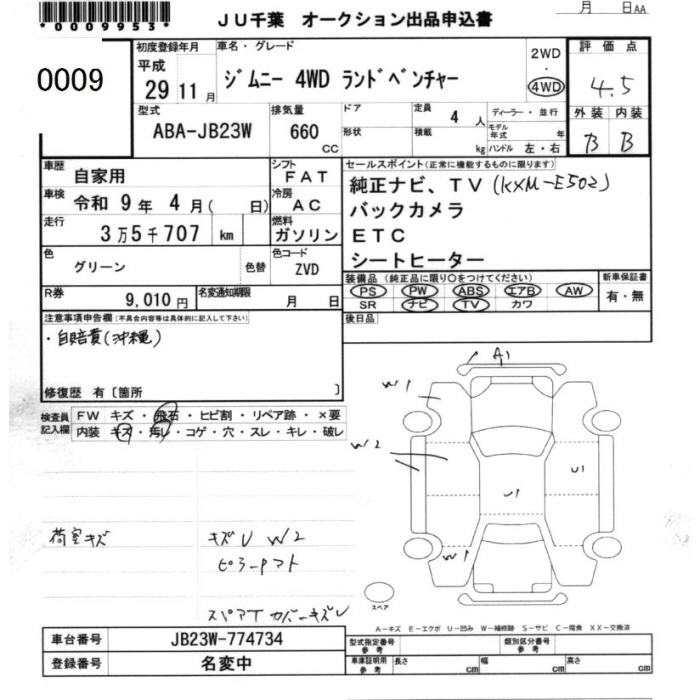 *0009953*
JU千葉 オークション出品申込書
月 日AA
0009
初度登録年月
平成
29 11 月
車名・グレード
ジムニー 4WD ランドベンチャー
2WD
・
4WD
評価点
4.5
外装 内装
B B
型式
ABA-JB23W
排気量
660
CC
ドア
形状
定員
4 人
積載
kg
ディーラー・並行
モデル年式 年
ハンドル 左・右
車歴
自家用
シフト
FAT
車検
令和 9年 4月( 日)
冷房
AC
走行
3万5千707 km
燃料
ガソリン
色
グリーン
色替
色コード
ZVD
R券
9,010 円
名変通知期限
月 日
セールスポイント(正常に機能するものに限ります)
純正ナビ、TV (KXM-E502)
バックカメラ
ETC
シートヒーター
装備品(純正品に限り○をつけてください)
PS PW ABS エアB AW
SR ナビ TV カワ
新車保証書
有・無
後日品
注意事項申告欄(不具合内容等は具体的に記入して下さい)
・自賠責(沖縄)
修復歴 有[箇所 ]
検査員記入欄
FW キズ・飛石・ヒビ割・リペア跡・×要
内装 キズ・汚レ・コゲ・穴・スレ・キレ・破レ
A1
W1
W2
U1
U1
W1
荷室キズ
キズU W2
スペアT カバーキズU
スペア
A-キズ E-エクボ U-凹み W-補修跡 S-サビ C-腐食 XX-交換済
車台番号
JB23W-774734
登録番号
名変中
型式指定番号
参考
類別区分番号
参考
車庫証明用
参考
長さ cm
幅 cm
高さ cm